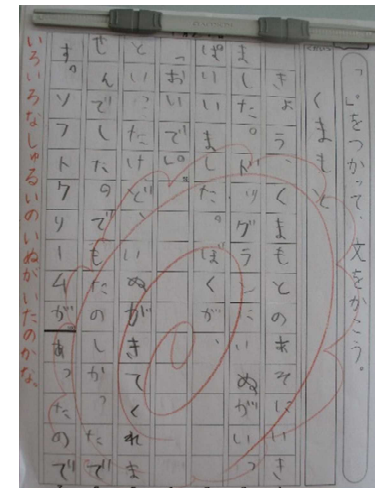 「」をつかって、文をかこう。
くまもと
きょう、くまもとのあそにいき
ました。ドッグランにいぬがいっ
ぱいいました。ぼくが、
「おいで。」
といったけど、いぬがきてくれま
せんでしたのでもたのしかったで
す。ソフトクリームがあったので
いろいろなしゅるいのいぬがいたのかな。